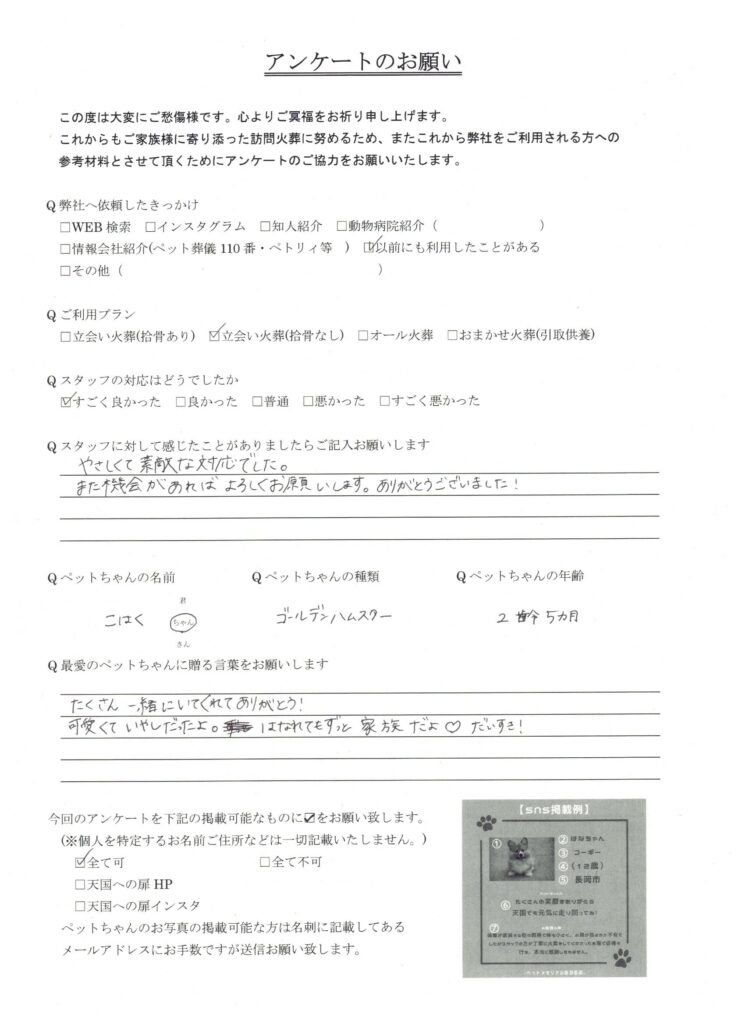 アンケートのお願い
この度は大変にご愁傷様です。心よりご冥福をお祈り申し上げます。
これからもご家族様に寄り添った訪問火葬に努めるため、またこれから弊社をご利用される方への
参考材料とさせて頂くためにアンケートのご協力をお願いいたします。
Q 弊社へ依頼したきっかけ
□WEB 検索 □インスタグラム □知人紹介 □動物病院紹介（ ）
□情報会社紹介(ペット葬儀 110 番・ペトリィ等 ) ☑以前にも利用したことがある
□その他（ ）
Q ご利用プラン
□立会い火葬(拾骨あり) ☑立会い火葬(拾骨なし) □オール火葬 □おまかせ火葬(引取供養)
Q スタッフの対応はどうでしたか
☑すごく良かった □良かった □普通 □悪かった □すごく悪かった
Q スタッフに対して感じたことがありましたらご記入お願いします
やさしくて素敵な対応でした。
また機会があればよろしくお願いします。ありがとうございました！
Q ペットちゃんの名前 Q ペットちゃんの種類 Q ペットちゃんの年齢
君
こはく ちゃん ゴールデンハムスター 2齢5カ月
さん
Q 最愛のペットちゃんに贈る言葉をお願いします
たくさん一緒にいてくれてありがとう！
可愛くていやしだったよ。はなれてもずっと家族だよ♡だいすき！
今回のアンケートを下記の掲載可能なものに☑をお願い致します。
(※個人を特定するお名前ご住所などは一切記載いたしません。)
☑全て可 □全て不可
□天国への扉 HP
□天国への扉インスタ
ペットちゃんのお写真の掲載可能な方は名刺に記載してある
メールアドレスにお手数ですが送信お願い致します。
【sns掲載例】
① ② はなちゃん
③ コーギー
④ （12歳）
⑤ 長岡市
⑥ たくさんの笑顔をありがとう
天国でも元気に走り回ってね！
⑦